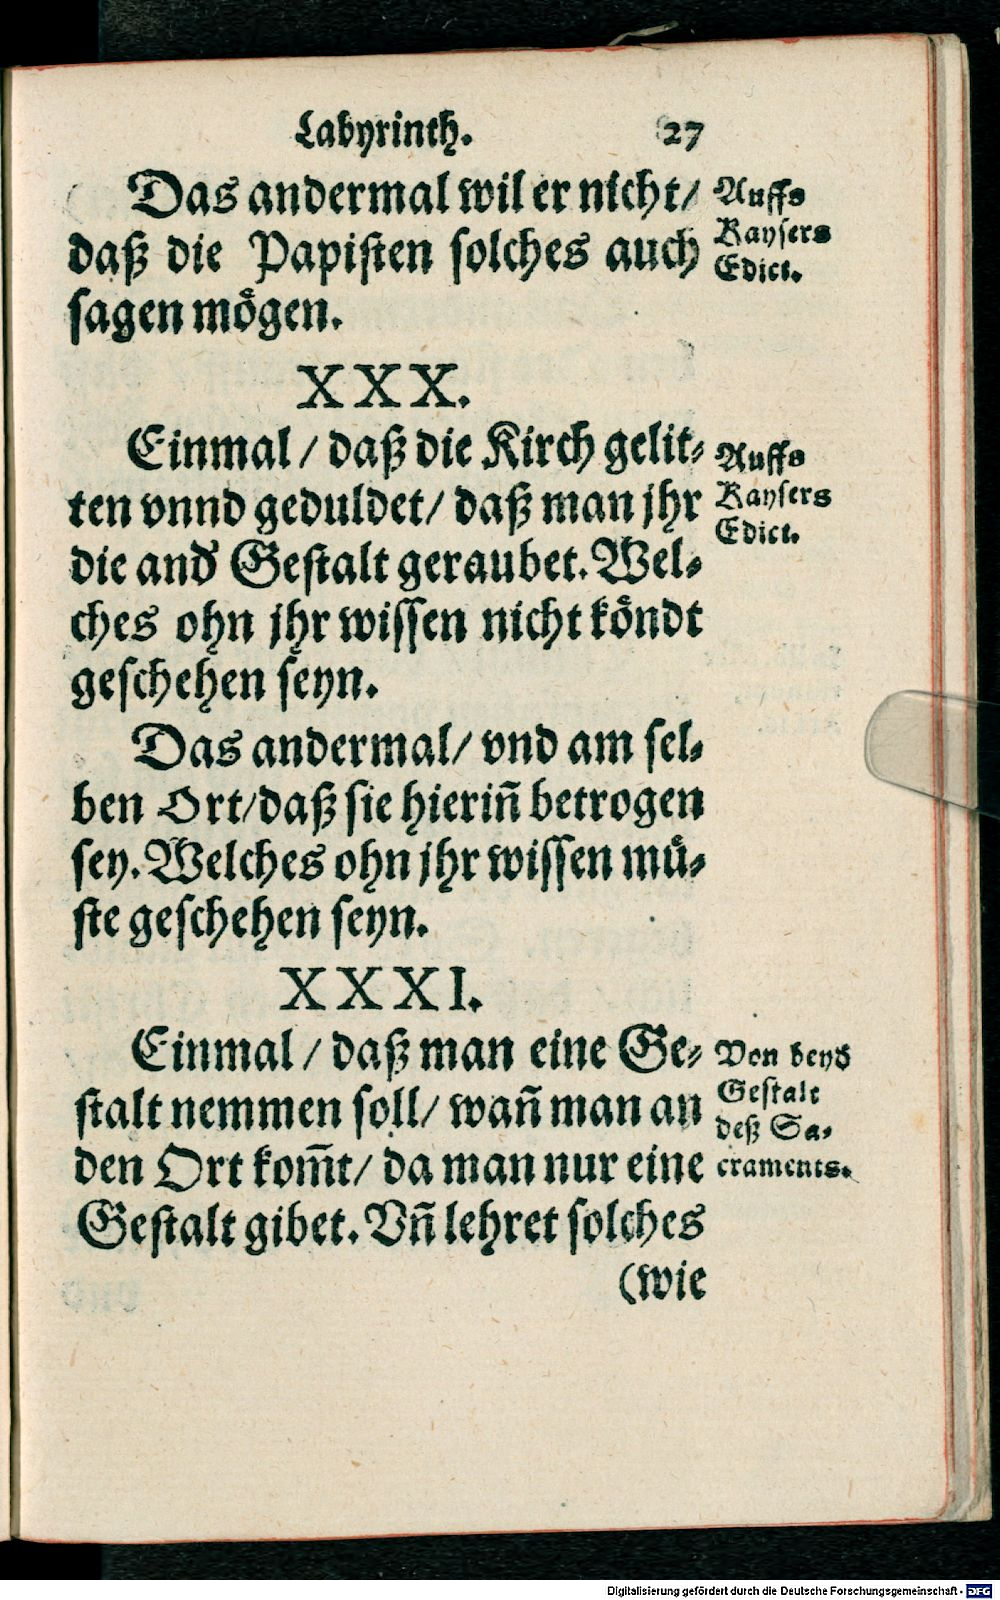 Labyrinth. 27
Das andermal wil er nicht/
daß die Papisten solches auch
sagen mögen.
Auffs
Kaysers
Edict.
XXX.
Einmal / daß die Kirch gelit⸗
ten vnnd geduldet/ daß man jhr
die and̕ Gestalt geraubet. Wel⸗
ches ohn jhr wissen nicht köndt
geschehen seyn.
Auffs
Kaysers
Edict.
Das andermal/ vnd am sel⸗
ben Ort/daß sie hieriñ betrogen
sey. Welches ohn jhr wissen mü⸗
ste geschehen seyn.
XXXI.
Einmal / daß man eine Ge⸗
stalt nemmen soll/ wañ man an
den Ort kom̃t/ da man nur eine
Gestalt gibet. Vñ lehret solches
Von beyd̕
Gestalt
deß Sa⸗
craments.
(wie
Digitalisierung gefördert durch die Deutsche Forschungsgemeinschaft - DFG